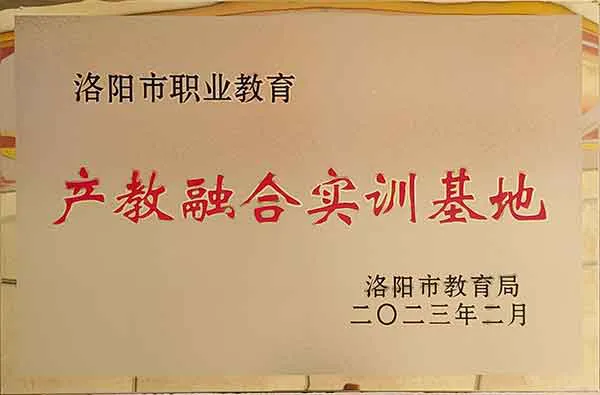 洛阳市职业教育
产教融合实训基地
洛阳市教育局
二〇二三年二月